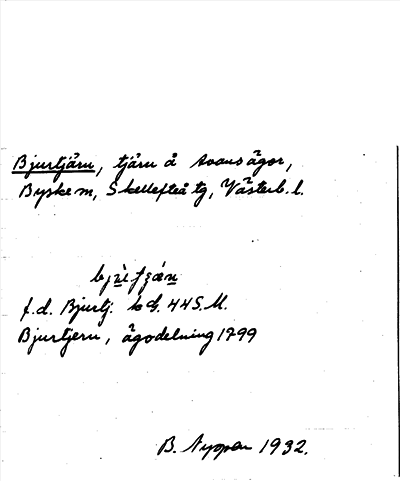 Bjurtjärn, tjärn å Avans ägor,
Byske m, Skellefteå tg, Västerb. l.
f.d. Bjurtj. bd. 445. M.
Bjurtjern, ägodelning 1799
B. Nyman 1932.